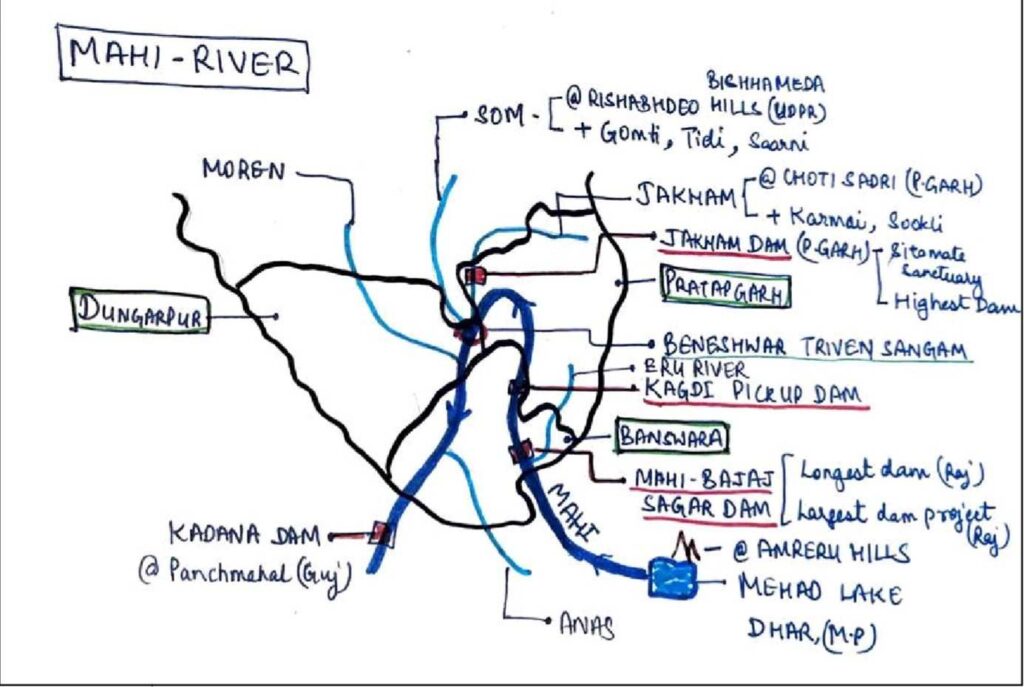 MAHI - RIVER
BICHHAMEDA
SOM - @ RISHABHDEO HILLS (UDPR)
+ Gomti, Tidi, Saarni
MOREN
JAKHAM @ CHOTI SADRI (P.GARH)
+ Karmai, Sookli
JAKHAM DAM (P.GARH) - Sitamate
Sanctuary
Highest Dam
PRATAPGARH
DUNGARPUR
BENESHWAR TRIVEN SANGAM
ERU RIVER
KAGDI PICKUP DAM
BANSWARA
MAHI-BAJAJ
SAGAR DAM
Longest dam (Raj)
Largest dam project
(Raj)
MAHI
KADANA DAM
@ Panchmahal (Guj)
@ AMRERU HILLS
MEHAD LAKE
DHAR, (M.P)
ANAS